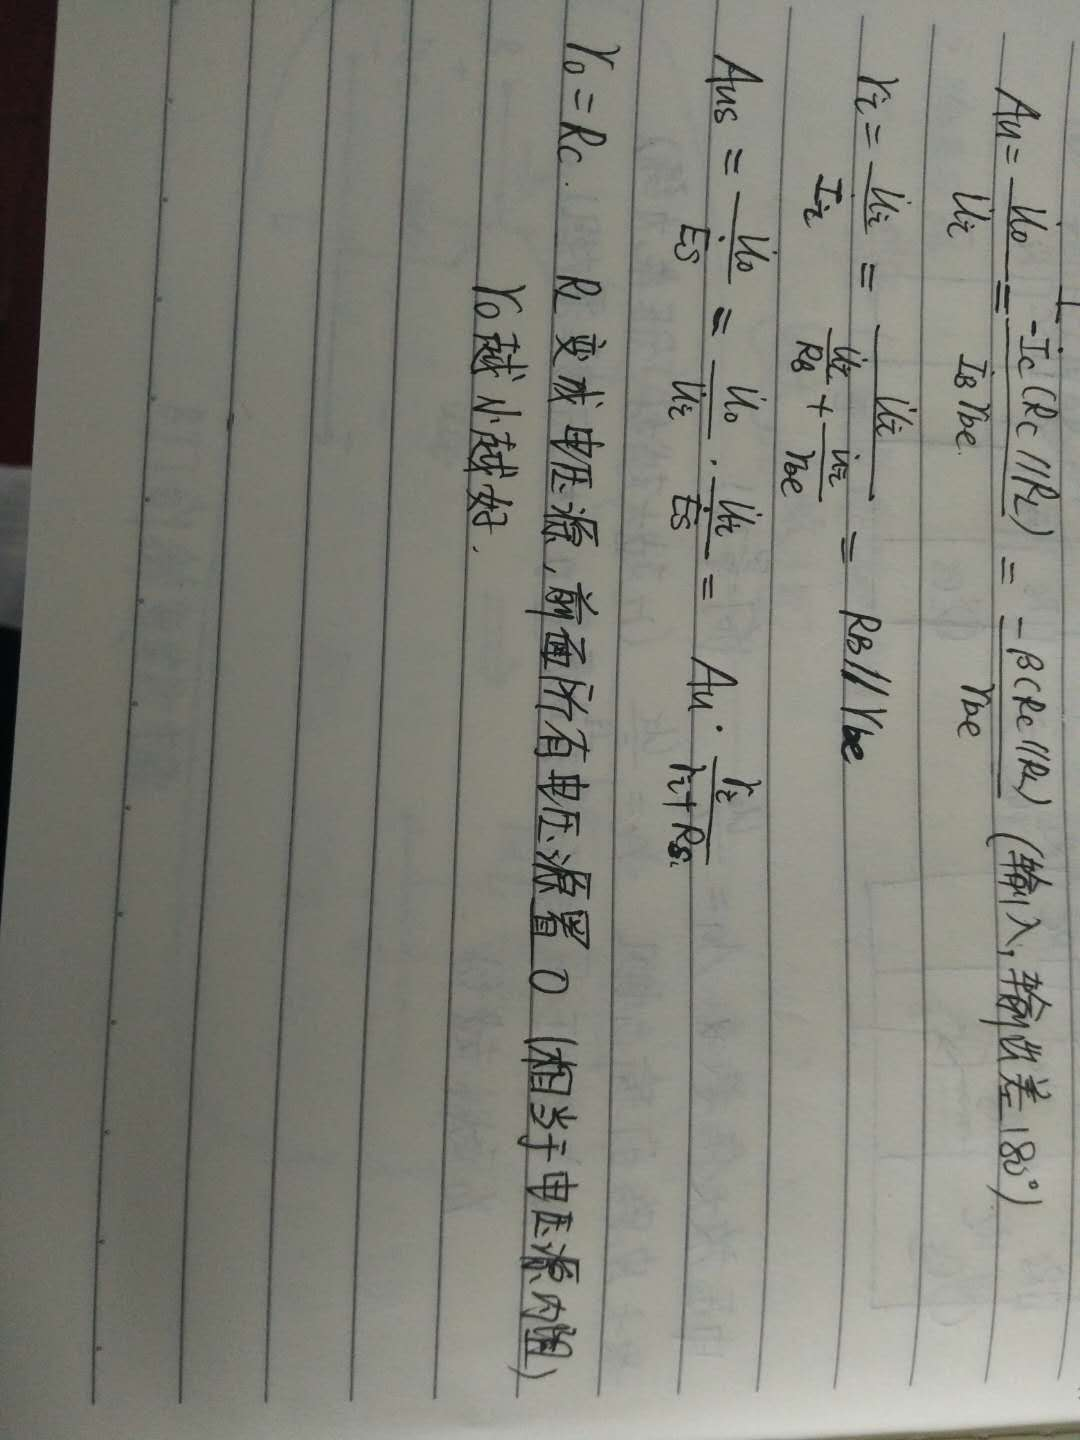 Au = U̇o / U̇i = -İc(Rc∥RL) / İB rbe = -β(Rc∥RL) / rbe (输入,输出差180°)
ri = U̇i / İi = U̇i / (U̇i/RB + U̇i/rbe) = RB∥rbe
Aus = U̇o / Ės = U̇o / U̇i · U̇i / Ės = Au · ri / (ri+Rs)
ro = Rc. RL变成电压源,前面所有电压源置0 (相当于电压源内阻)
ro越小越好.